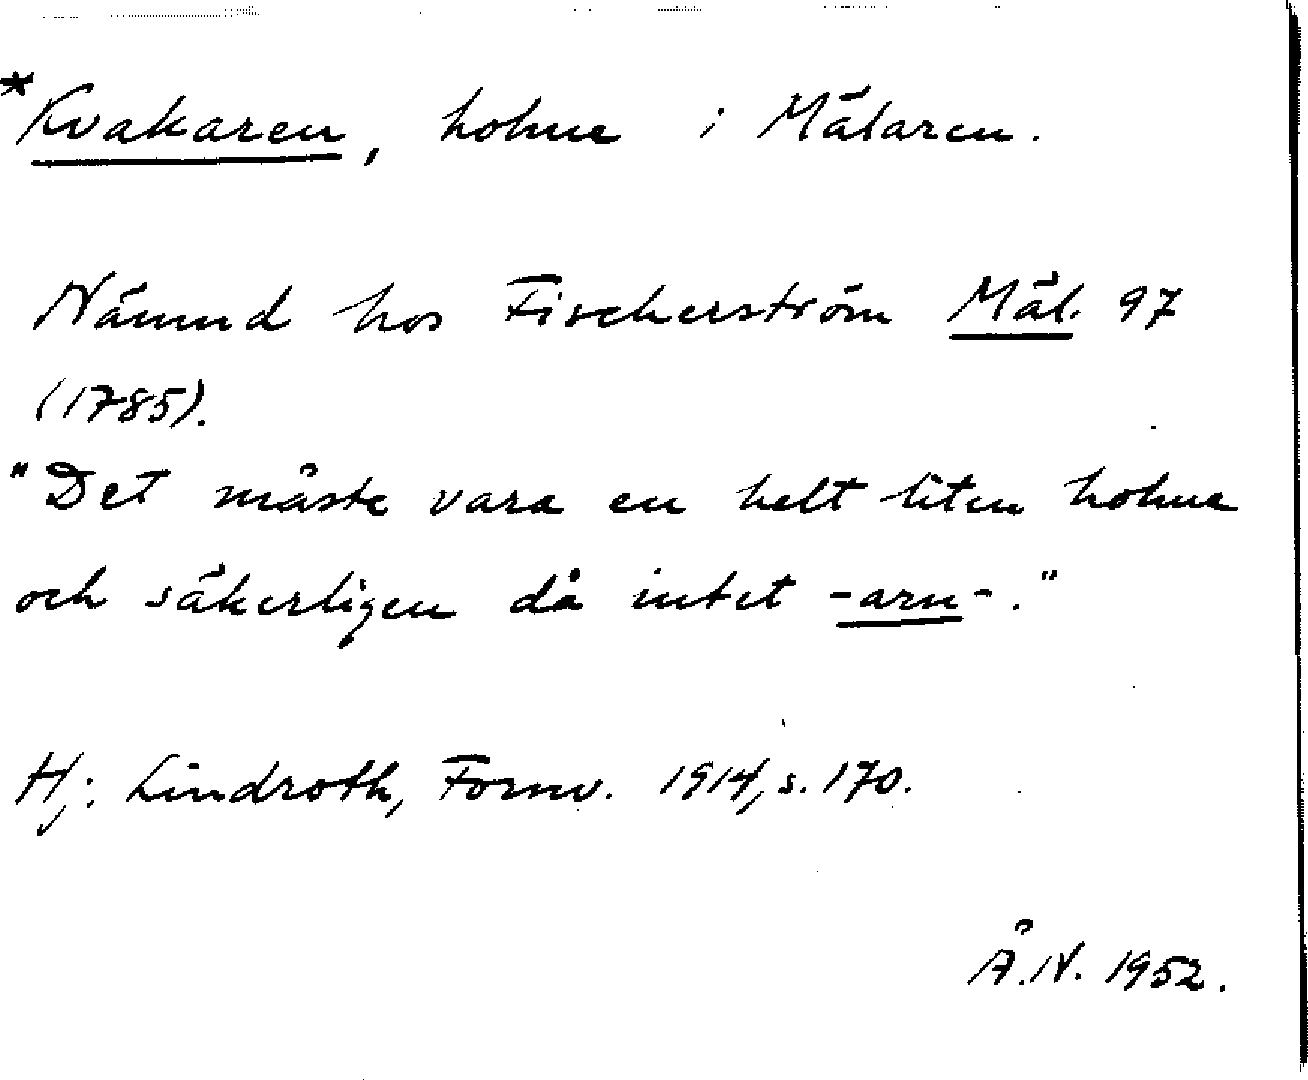 *Kvakaren, holme i Mälaren.
Nämnd hos Fischerström Mäl. 97
(1785).
"Det måste vara en helt liten holme
och säkerligen då intet -arn-."
Hj. Lindroth, Fornv. 1914, s. 170.
Å.N. 1952.